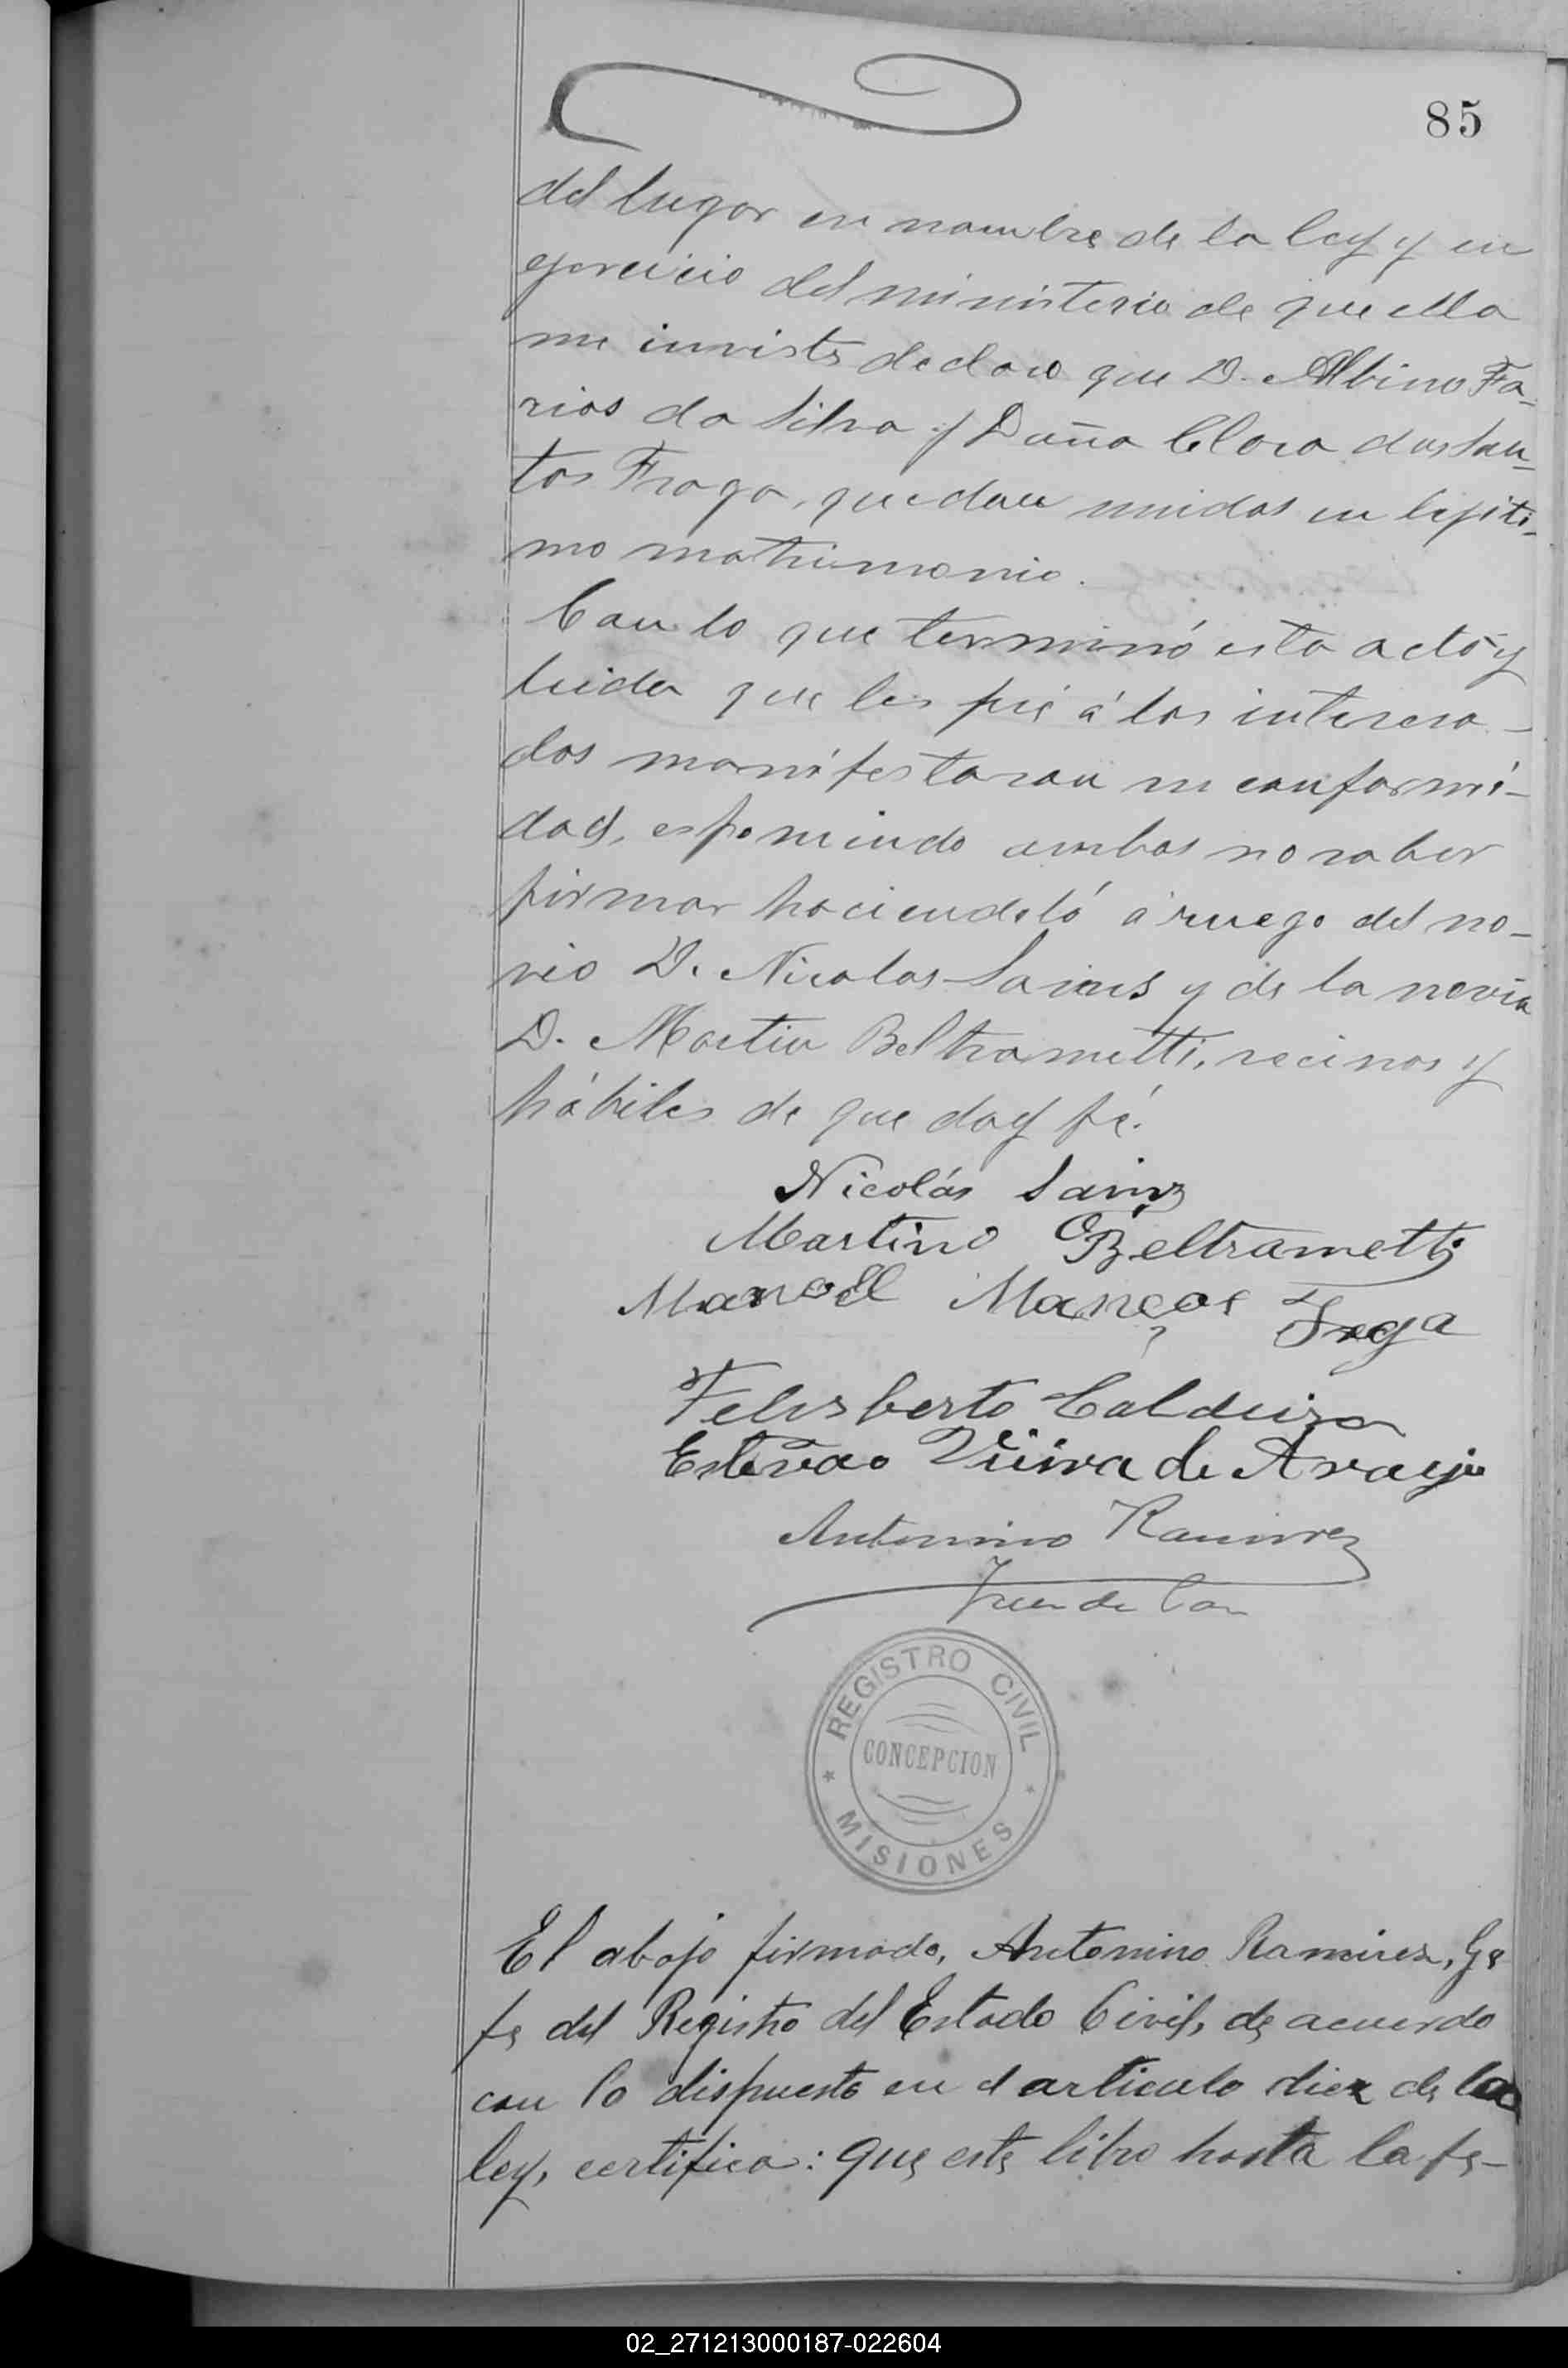 85
del lugar en nombre de la ley y en
ejercicio del ministerio de que ella
me inviste declaro que D. Albino Fa-
rias da Silva y Doña Clara dos San-
tos Fraga, quedan unidos en lejiti-
mo matrimonio.
Con lo que terminó esta acta y
leida que les fué á los interesa-
dos manifestaron su conformi-
dad, esponiendo ambos no saber
firmar haciendoló á ruego del no-
vio D. Nicolas Sains y de la novia
D. Martin Beltrametti, vecinos y
hábiles de que doy fé.
Nicolás Sainz
Martino Beltrametti
Manoel
Felisberto Caldeira
Estevão Vieira de Araujo
Antonino Ramirez
Juez de Paz
REGISTRO CIVIL
CONCEPCION
MISIONES
El abajo firmado, Antonino Ramirez, Ge
fe del Registro del Estado Civil, de acuerdo
con lo dispuesto en el articulo diez de la
ley, certifica: que este libro hasta la fe-
02_271213000187-022604